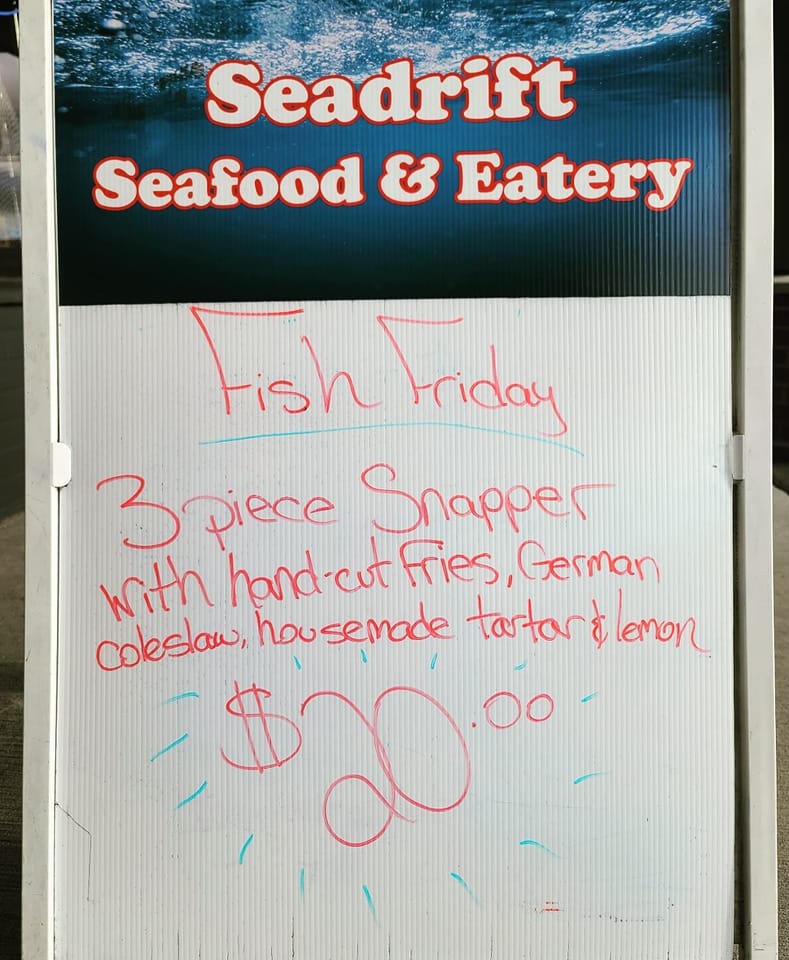 Seadrift
Seafood & Eatery
Fish Friday
3 piece Snapper
with hand-cut fries, German
coleslaw, housemade tartar & lemon
$20.00